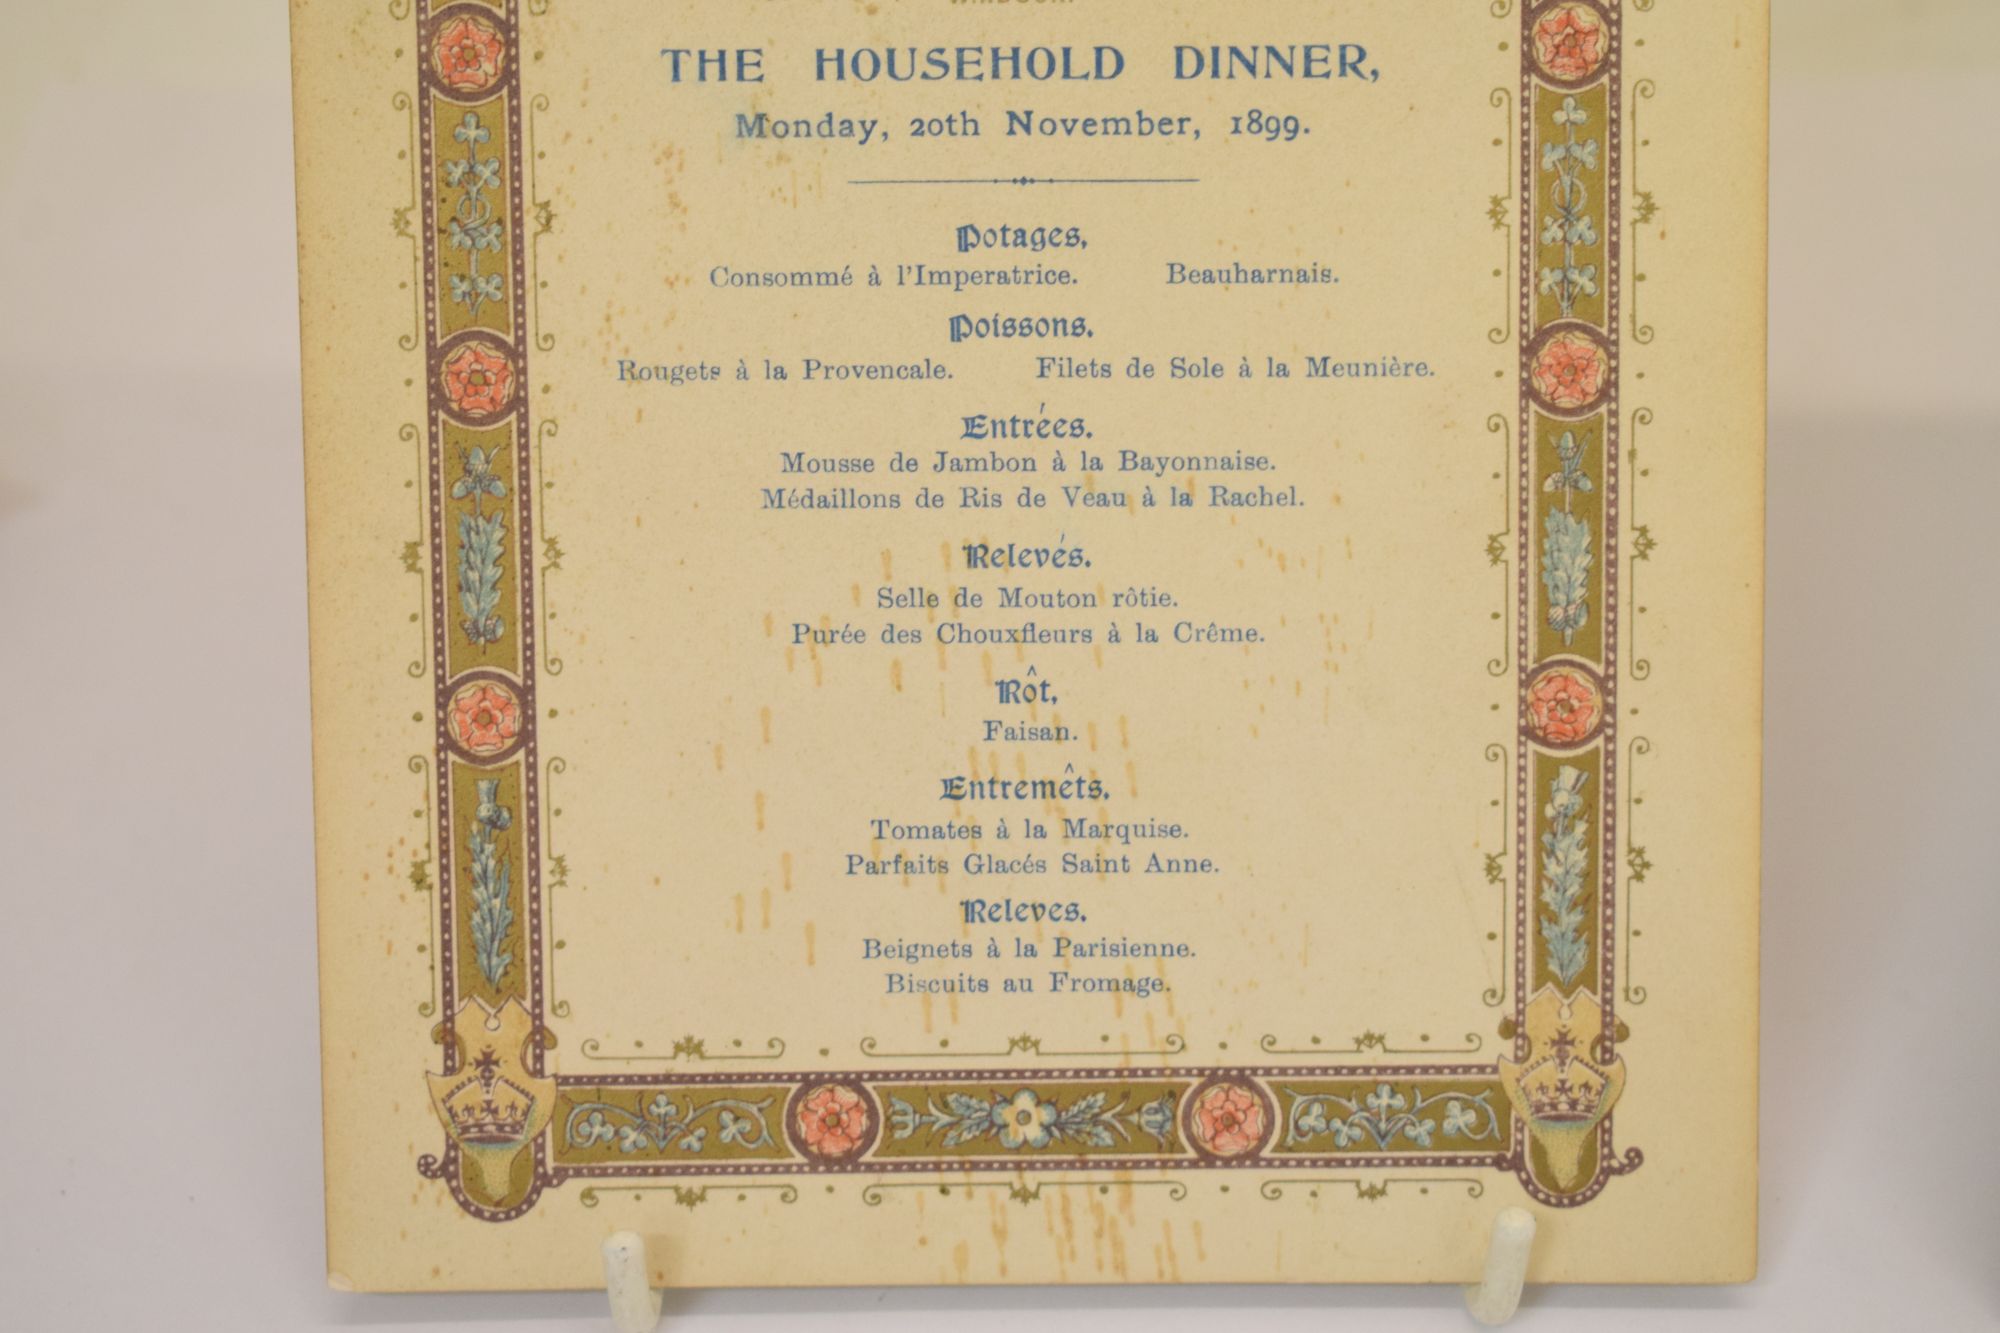 THE HOUSEHOLD DINNER,
Monday, 20th November, 1899.
Potages.
Consommé à l'Imperatrice. Beauharnais.
Poissons.
Rougets à la Provencale. Filets de Sole à la Meunière.
Entrées.
Mousse de Jambon à la Bayonnaise.
Médaillons de Ris de Veau à la Rachel.
Relevés.
Selle de Mouton rôtie.
Purée des Chouxfleurs à la Crême.
Rôt.
Faisan.
Entremêts.
Tomates à la Marquise.
Parfaits Glacés Saint Anne.
Releves.
Beignets à la Parisienne.
Biscuits au Fromage.